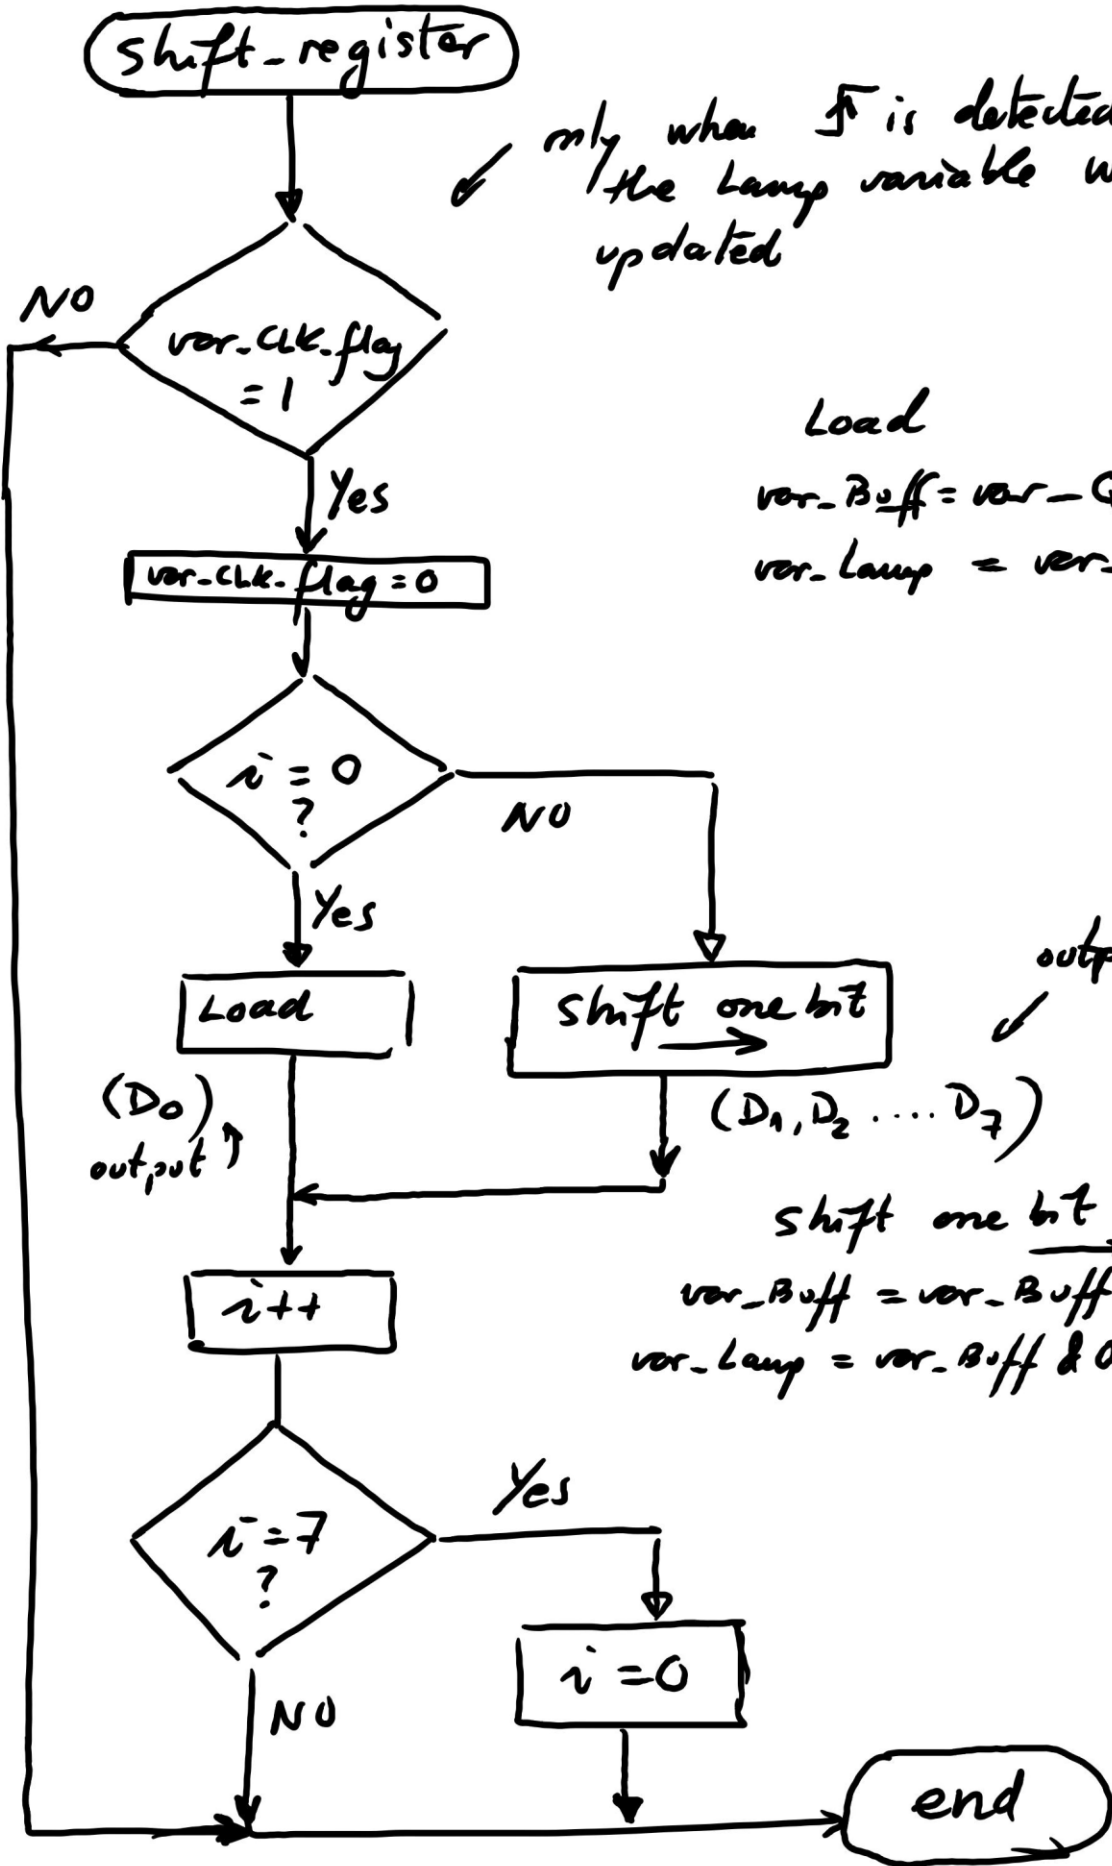 shift_register
only when is detected
the Lamp variable w
updated
NO
var_CLK_flag
= 1
Yes
Load
var_Buff = var_
var_Lamp = var_
var_CLK_flag = 0
i = 0
?
NO
Yes
Load
shift one bit
outp
(D0)
output
(D1, D2 .... D7)
shift one bit
var_Buff = var_Buff
var_Lamp = var_Buff & 0
i++
Yes
i = 7
?
i = 0
NO
end